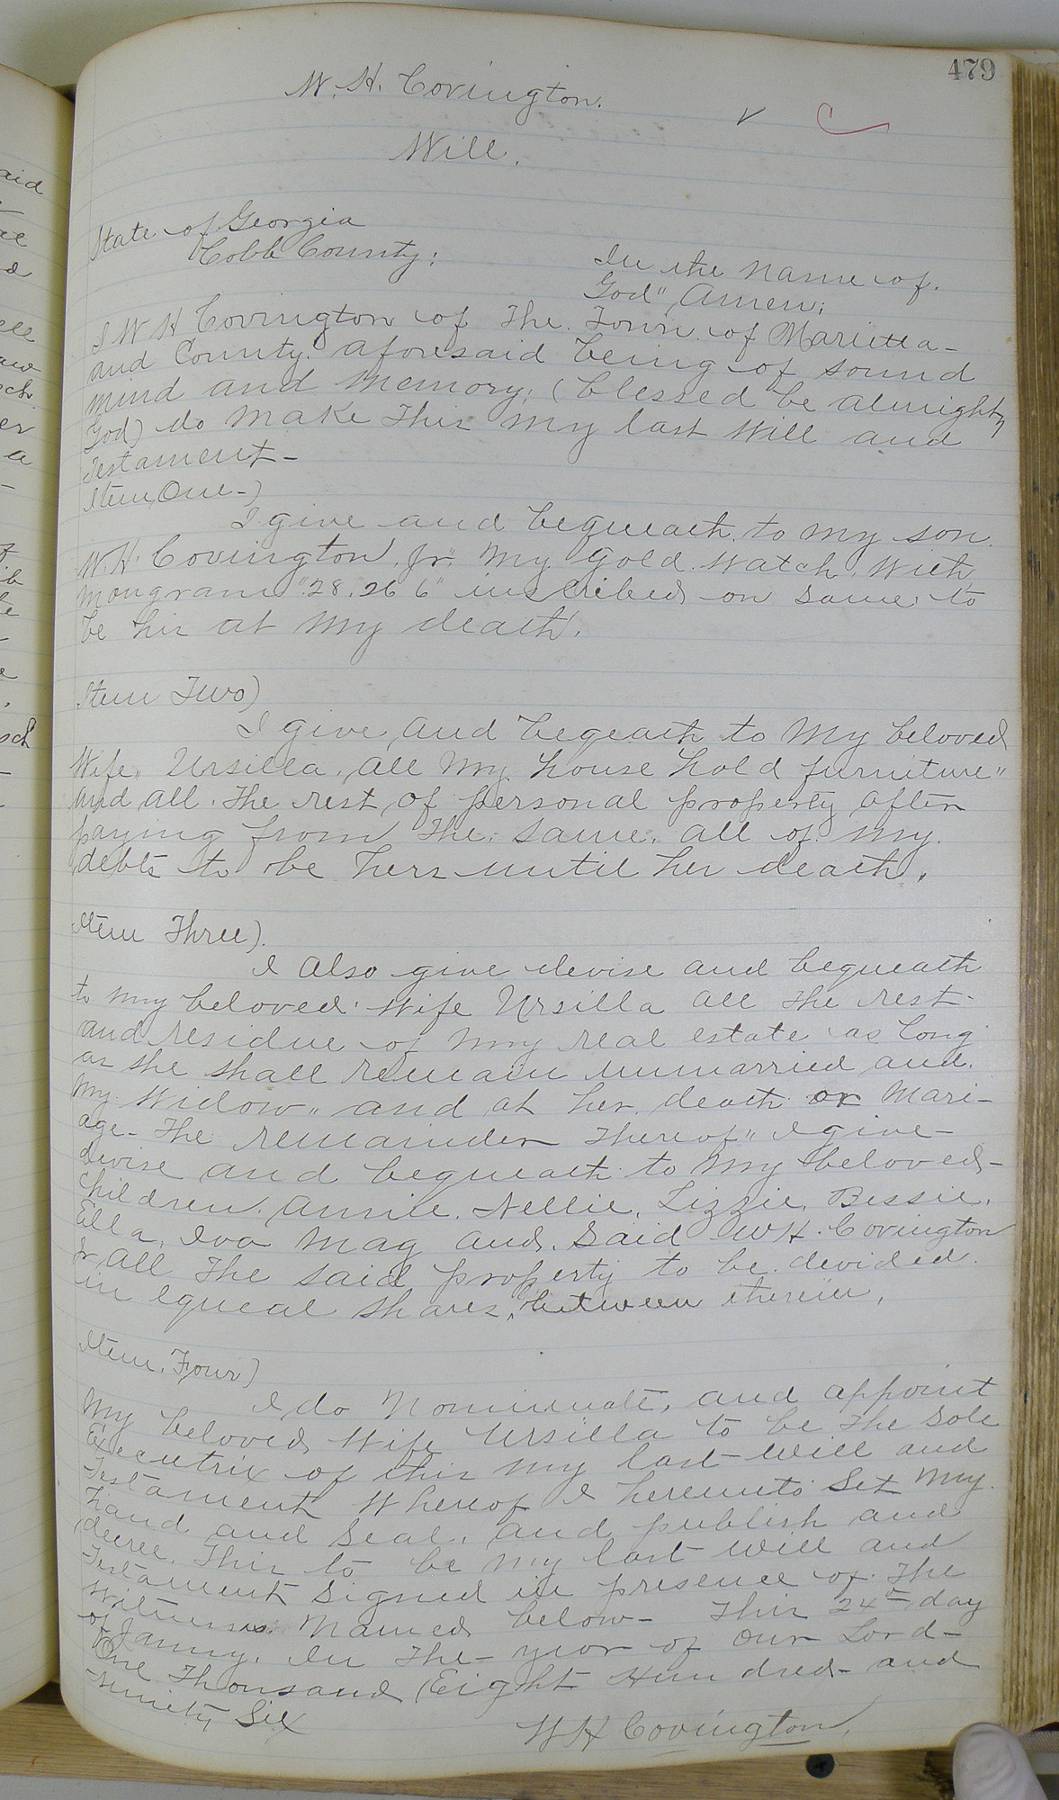 479
W. H. Covington.
Will.
State of Georgia
Cobb County:
In the name of.
God" Amen;
I W H Covington of The Town of Marietta-
and County. aforesaid being of sound
mind and memory; (blessed be almighty
God) do make This my last Will and
Testament-
Item One-)
I give and bequeath to my son.
W. H. Covington, Jr. my gold watch. With
mongram "28. 26 6" inscribed on same to
be his at my death.
Item Two)
I give and beqeath to my beloved
Wife, Ursilla, all my house hold furniture"
and all. the rest of personal property after
paying from the same. all of my.
debts to be hers until her death.
Item Three).
I also give devise and bequeath
to my beloved wife Ursilla all the rest
and residue of my real estate as long
as she shall remain unmarried and.
my Widow" and at her death or Mari-
age- The remainder thereof" I give-
devise and bequeath to my beloved-
children. Annie. Nellie, Lizzie, Bessie.
Ella, Iva Mag and. Said W H. Covington
Jr all The said property to be devided.
in equeal shares, between therein,
Item. Four)
I do Nominate, and appoint
My beloved Wife Ursilla to be the sole
Executrix of this my last will and
Testament Whereof I hereunto Set my
hand and seal, and publish and
decree. This to be my last will and
Testament Signed in presence of The
Witnesses. Named below- This 24th day
of Jany. In The- year of our Lord-
One Thousand Eight Hundred- and
ninety Six
W H Covington,